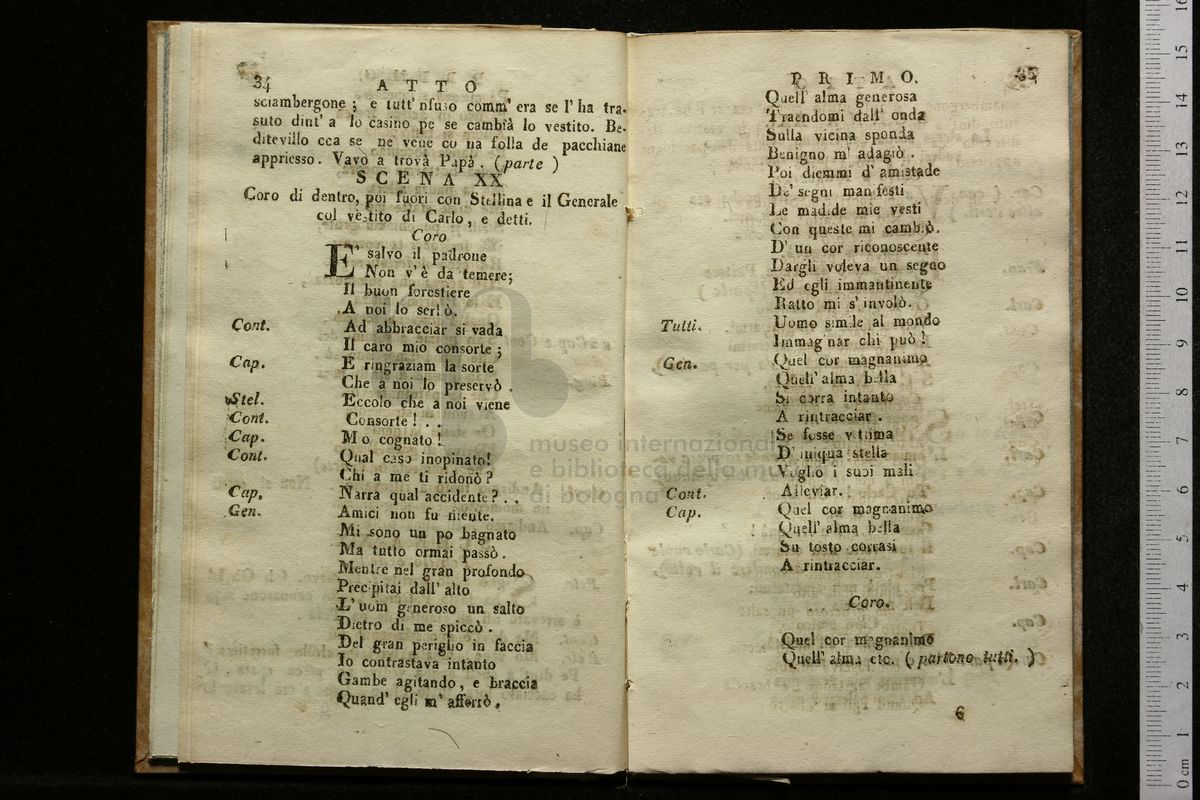 34
A T T O
sciambergone ; e tutt' nfuso comm' era se l' ha tra-
suto dint' a lo casino pe se cambià lo vestito. Be-
ditevillo cca se ne vene co na folla de pacchiane
appriesso. Vavo a trovà Papà. (parte )
S C E N A XX
Coro di dentro, poi fuori con Stellina e il Generale
col vestito di Carlo, e detti.
Coro
E' salvo il padrone
Non v' è da temere;
Il buon forestiere
A noi lo serbò.
Cont. Ad abbracciar si vada
Il caro mio consorte ;
Cap. E ringraziam la sorte
Che a noi lo preservò .
Stel. Eccolo che a noi viene
Cont. Consorte ! . .
Cap. M o cognato !
Cont. Qual caso inopinato!
Chi a me ti ridonò ?
Cap. Narra qual accidente ? . .
Gen. Amici non fu niente.
Mi sono un po bagnato
Ma tutto ormai passò .
Mentre nel gran profondo
Precipitai dall' alto
L' uom generoso un salto
Dietro di me spiccò .
Del gran periglio in faccia
Io contrastava intanto
Gambe agitando , e braccia
Quand' egli m' afferrò .
P R I M O.
Quell' alma generosa
Traendomi dall' onda
Sulla vicina sponda
Benigno m' adagiò .
Poi diemmi d' amistade
De' segni manifesti
Le madide mie vesti
Con queste mi cambiò.
D' un cor riconoscente
Dargli voleva un segno
Ed egli immantinente
Ratto mi s' involò.
Tutti. Uomo simile al mondo
Immaginar chi può !
Gen. Quel cor magnanimo
Quell' alma bella
Si corra intanto
A rintracciar .
Se fosse vittima
D' iniqua stella
Voglio i suoi mali
Cont. Alleviar.
Cap. Quel cor magnanimo
Quell' alma bella
Su tosto corrasi
A rintracciar.
Coro.
Quel cor magnanimo
Quell' alma etc. ( partono tutti. )
6
museo internazionale
e biblioteca della musica
di bologna
0 cm 1 2 3 4 5 6 7 8 9 10 11 12 13 14 15 16